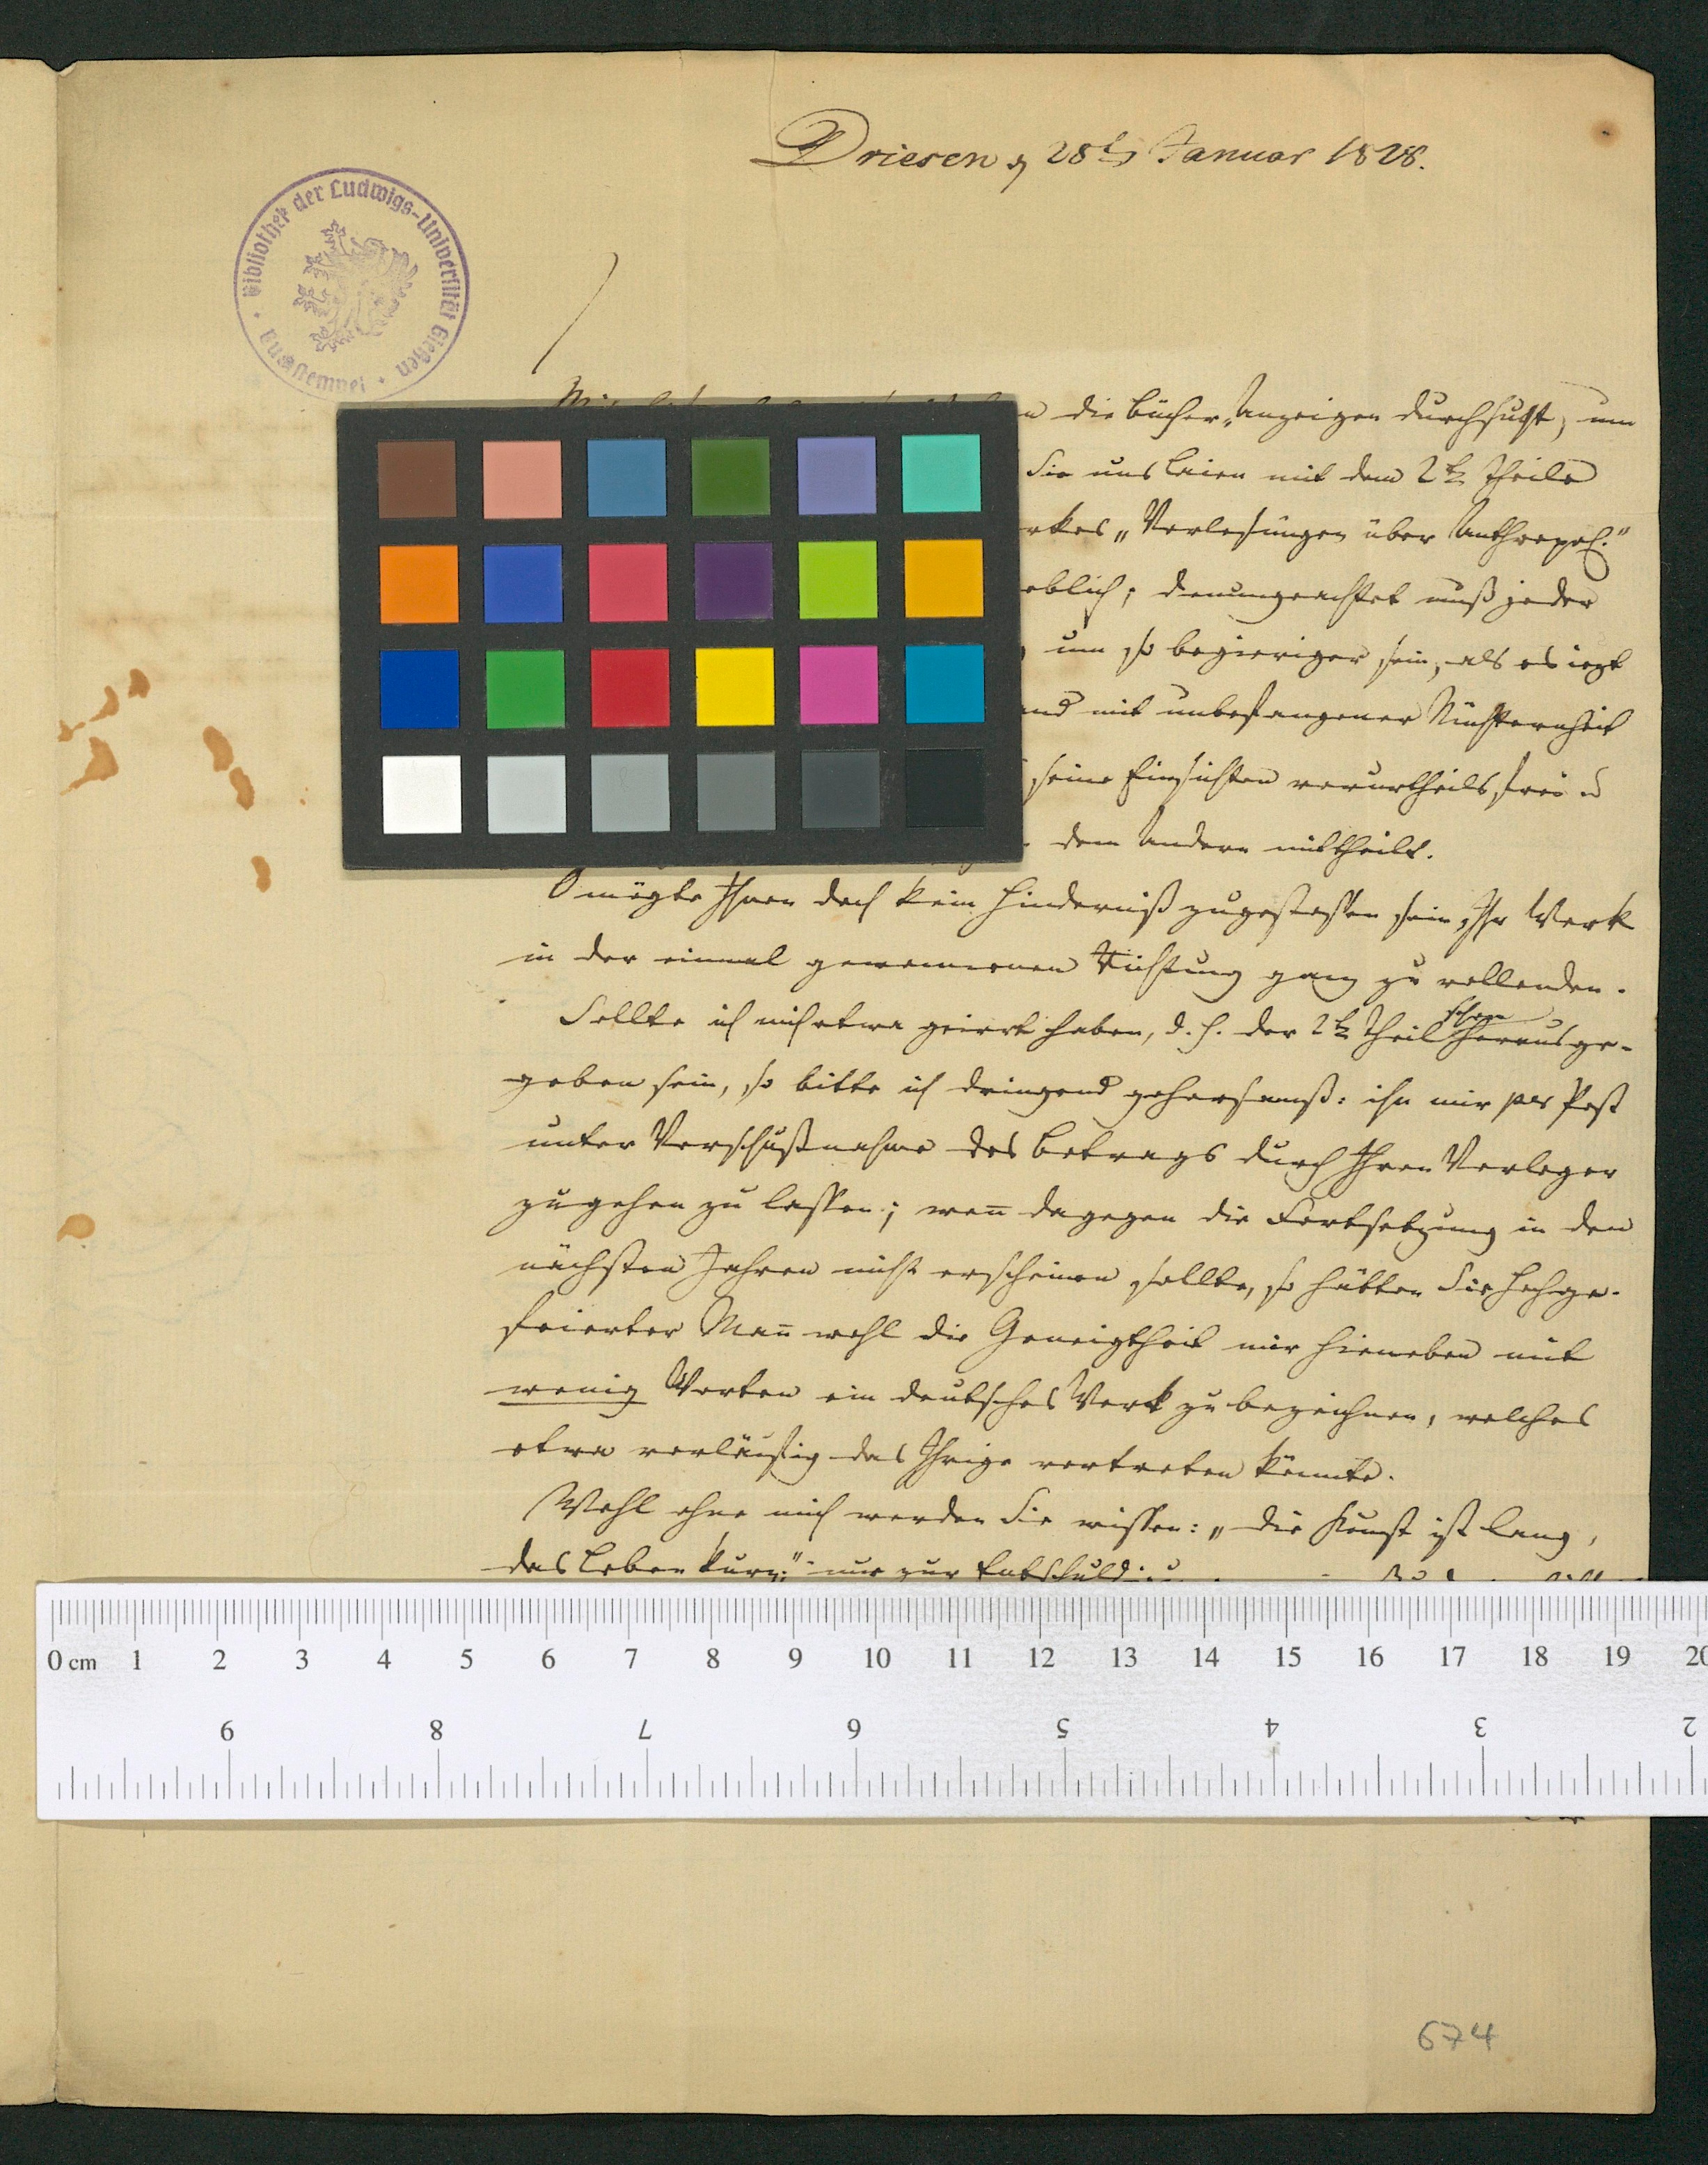 Driesen d 28t Januar 1828.
Bibliothek der Ludwigs-Universität Gießen
die Bücher-Anzeigen durchsucht, um
Sie uns Laien mit dem 2t Theile
rkes „Vorlesungen über Anthropol."
eblich; demungeachtet muß jeder
um so begieriger sein, als es iezt
und mit unbefangener Nüchternheit
seine Einsichten vorurtheilsfrei u
dem Andern mittheilt.
O mögte Ihnen doch kein Hinderniß zugestoßen sein, Ihr Werk
in der einmal genommenen Richtung ganz zu vollenden.
schon
Sollte ich mich etwa geirrt haben, d. h. der 2t Theil herausge-
geben sein, so bitte ich dringend gehorsamst: ihn mir per Post
unter Vorschußnahme des Betrags durch Ihren Verleger
zugehen zu lassen; wen̄ dagegen die Fortsetzung in den
nächsten Jahren nicht erscheinen sollte, so hätten Sie Hochge-
feierter Man̄ wohl die Geneigtheit mir hieneben mit
wenig Worten ein deutsches Werk zu bezeichnen, welches
etwa vorläufig das Ihrige vertreten könnte.
Wohl ohne mich werden Sie wissen: „die Kunst ist lang,
das Leben kurz;" nur zur
0 cm 1 2 3 4 5 6 7 8 9 10 11 12 13 14 15 16 17 18 19 20
9 8 7 6 5 4 3 2
674